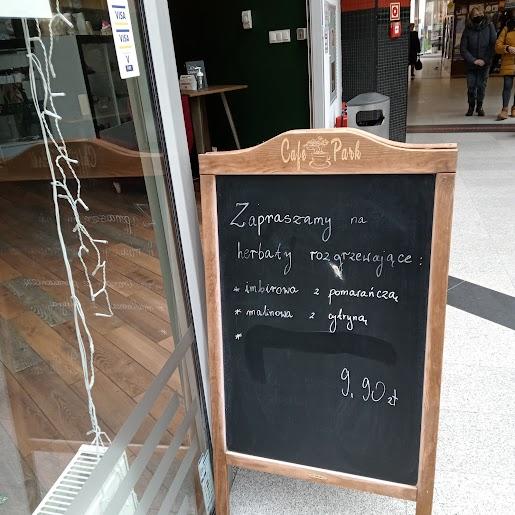 VISA
VISA
V
Café Park
Zapraszamy na
herbaty rozgrzewające:
* imbirowa z pomarańczą
* malinowa z cytryną
*
9,90 zł